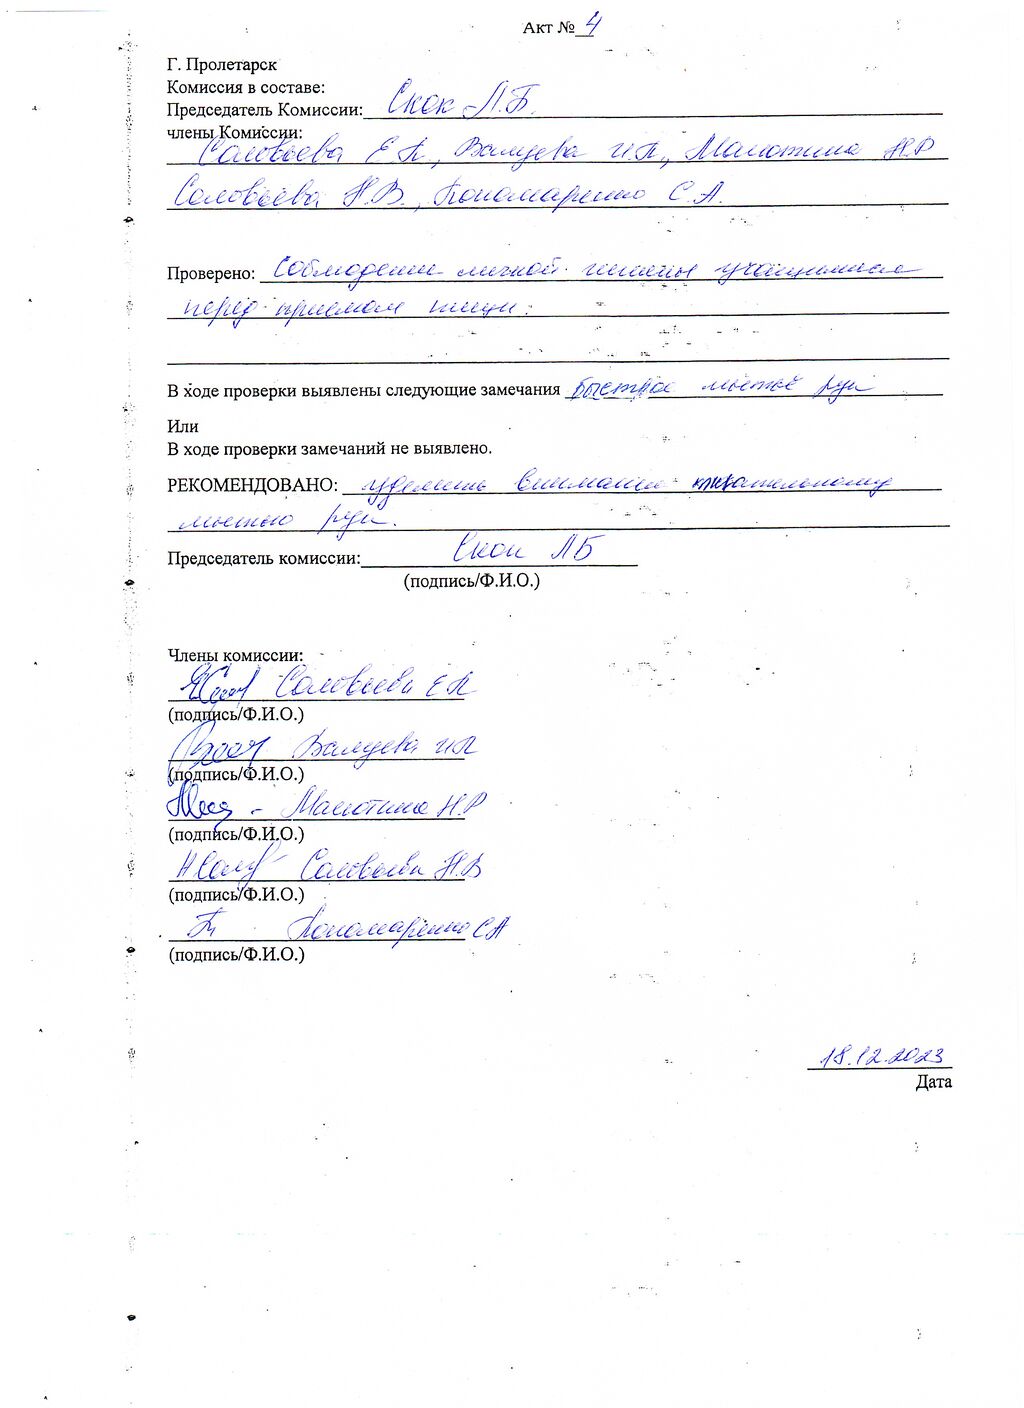 Акт № 4
Г. Пролетарск
Комиссия в составе:
Председатель Комиссии: Скок Л.Б.
члены Комиссии:
Соловьева Е П, Валуева И.П., Малютина Н.Р
Соловьева Н.В., Пономаренко С.А.
Проверено: Соблюдение личной гигиены учащимися
перед приемом пищи.
В ходе проверки выявлены следующие замечания быстрое мытьё рук
Или
В ходе проверки замечаний не выявлено.
РЕКОМЕНДОВАНО: уделить внимание тщательному
мытью рук.
Председатель комиссии: Скок Л Б
(подпись/Ф.И.О.)
Члены комиссии:
Соловьева Е П
(подпись/Ф.И.О.)
Валуева И П
(подпись/Ф.И.О.)
Малютина Н.Р
(подпись/Ф.И.О.)
Соловьева Н.В
(подпись/Ф.И.О.)
Пономаренко С А
(подпись/Ф.И.О.)
18.12.2023
Дата